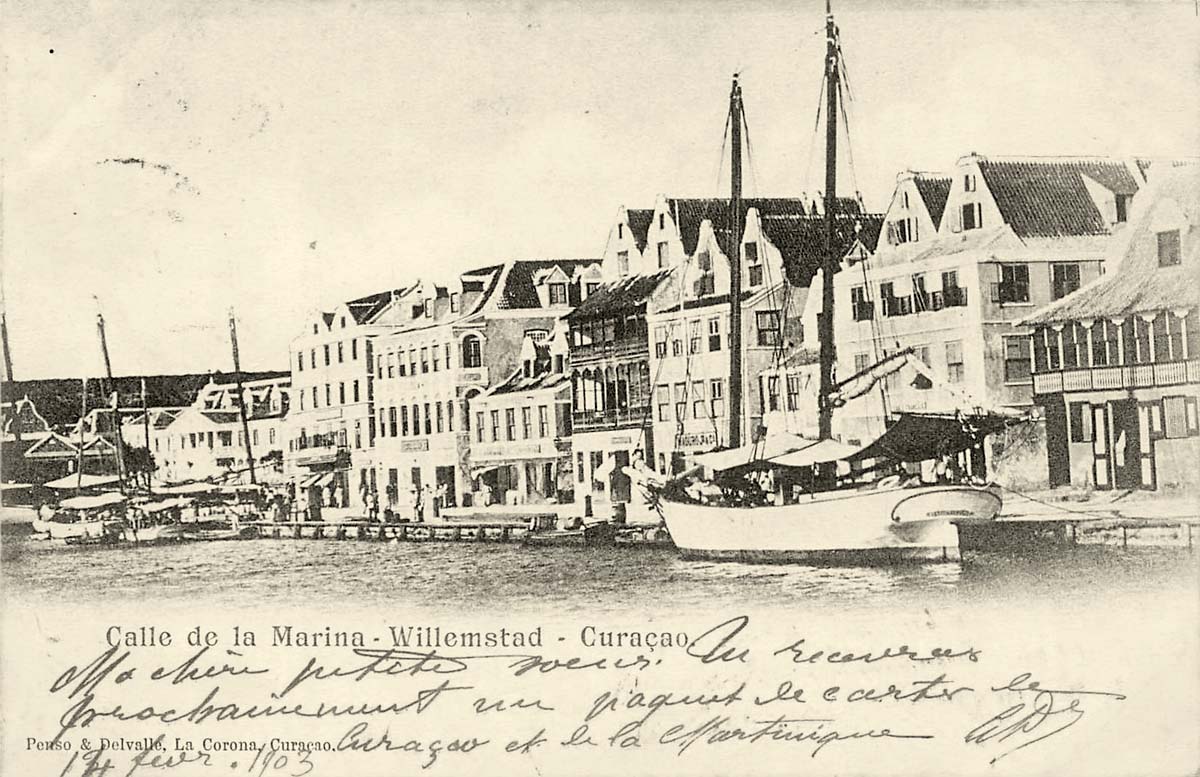 Calle de la Marina - Willemstad - Curaçao
Ma chère petite soeur. Tu recevras
prochainement un paquet de cartes de
Curaçao et de la Martinique
Penso & Delvalle, La Corona, Curaçao.
14 fevr. 1903